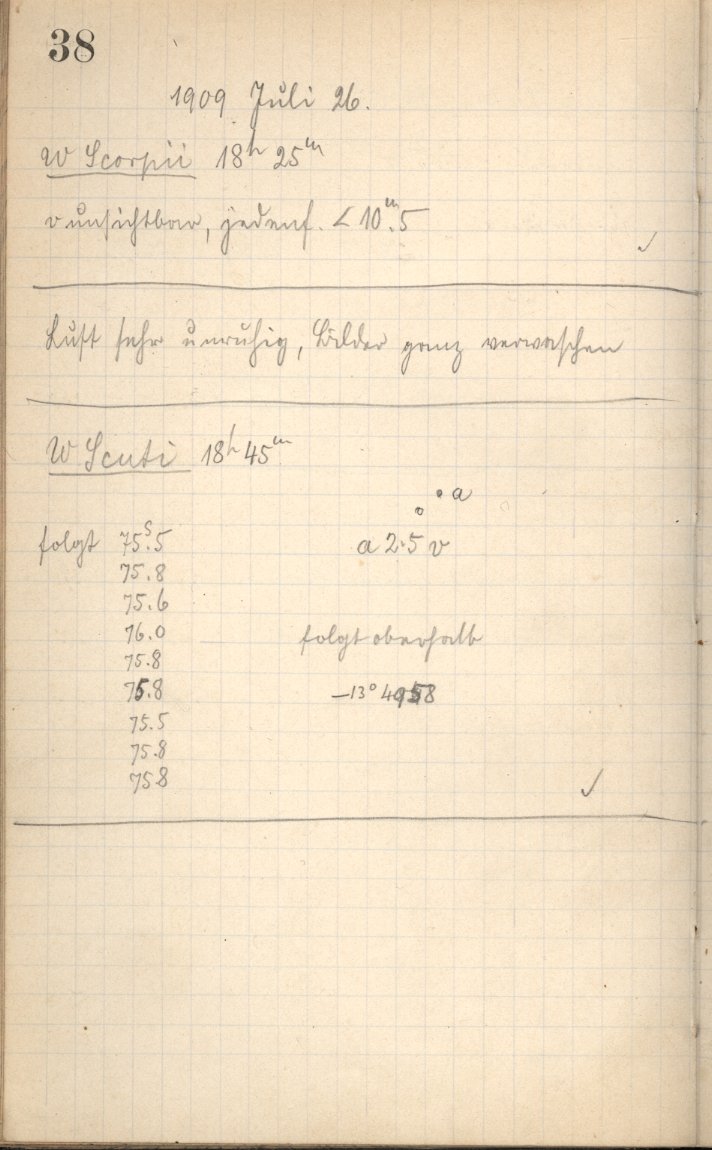 38
1909 Juli 26.
W Scorpii 18h 25m
v unsichtbar, jedenf. < 10m.5 ✓
Luft sehr unruhig, Bilder ganz verwaschen
W Scuti 18h 45m
a
folgt 75s.5 a 2.5 v
75.8
75.6
76.0 folgt oberhalb
75.8
75.8 –13° 4958
75.5
75.8
75.8 ✓